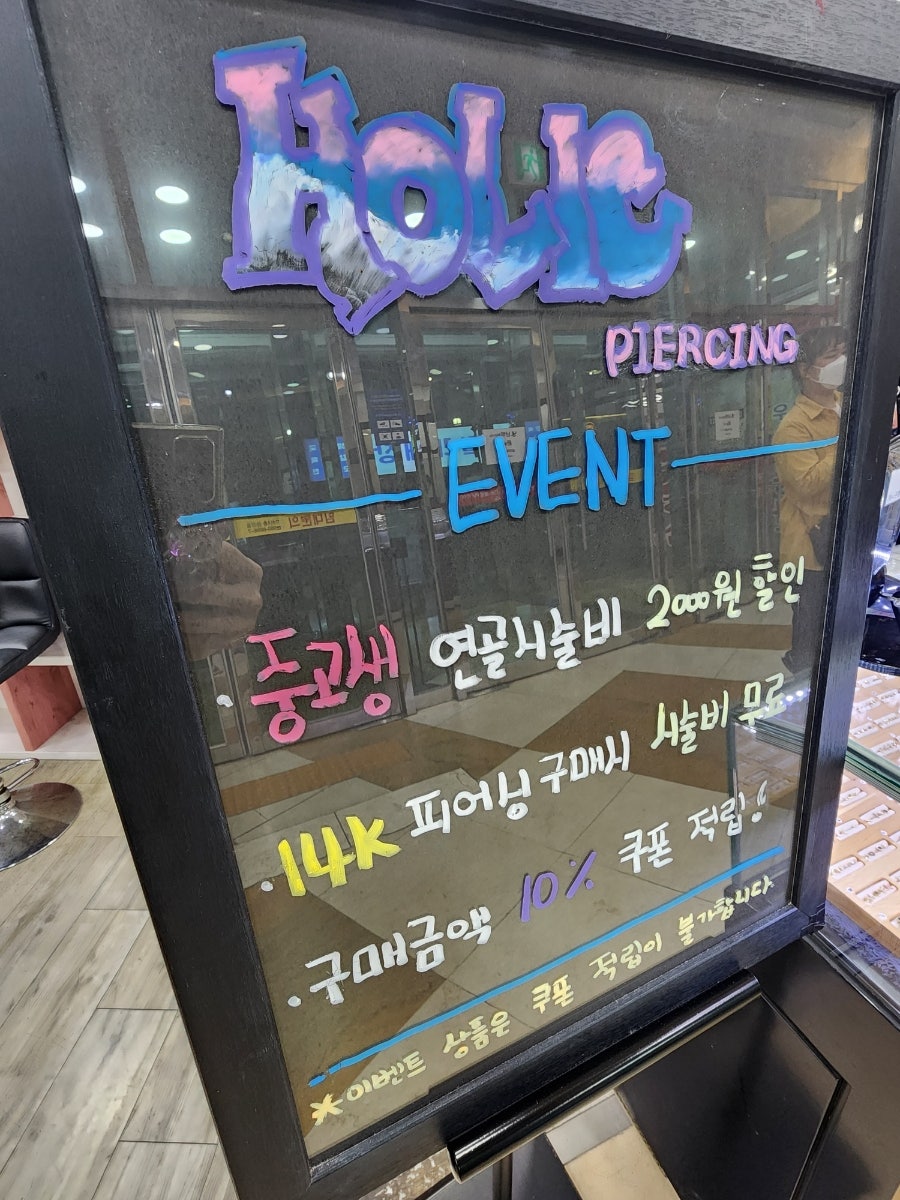 HOLIC
PIERCING
EVENT
· 중고생 연골시술비 2000원 할인
· 14K 피어싱 구매시 시술비 무료
· 구매금액 10% 쿠폰 적립!
* 이벤트 상품은 쿠폰 적립이 불가합니다